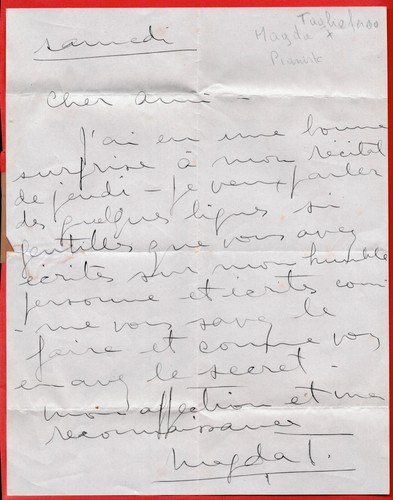 Tagliaferro
Magda +
Pianiste
samedi
Cher ami -
J'ai eu une bonne
surprise à mon récital
de jeudi - je veux parler
des quelques lignes si
gentilles que vous avez
écrites sur mon humble
personne et écrites com
- me vous savez le
faire et comme vous
en avez le secret -
mon affection et ma
reconnaissance
Magda T.